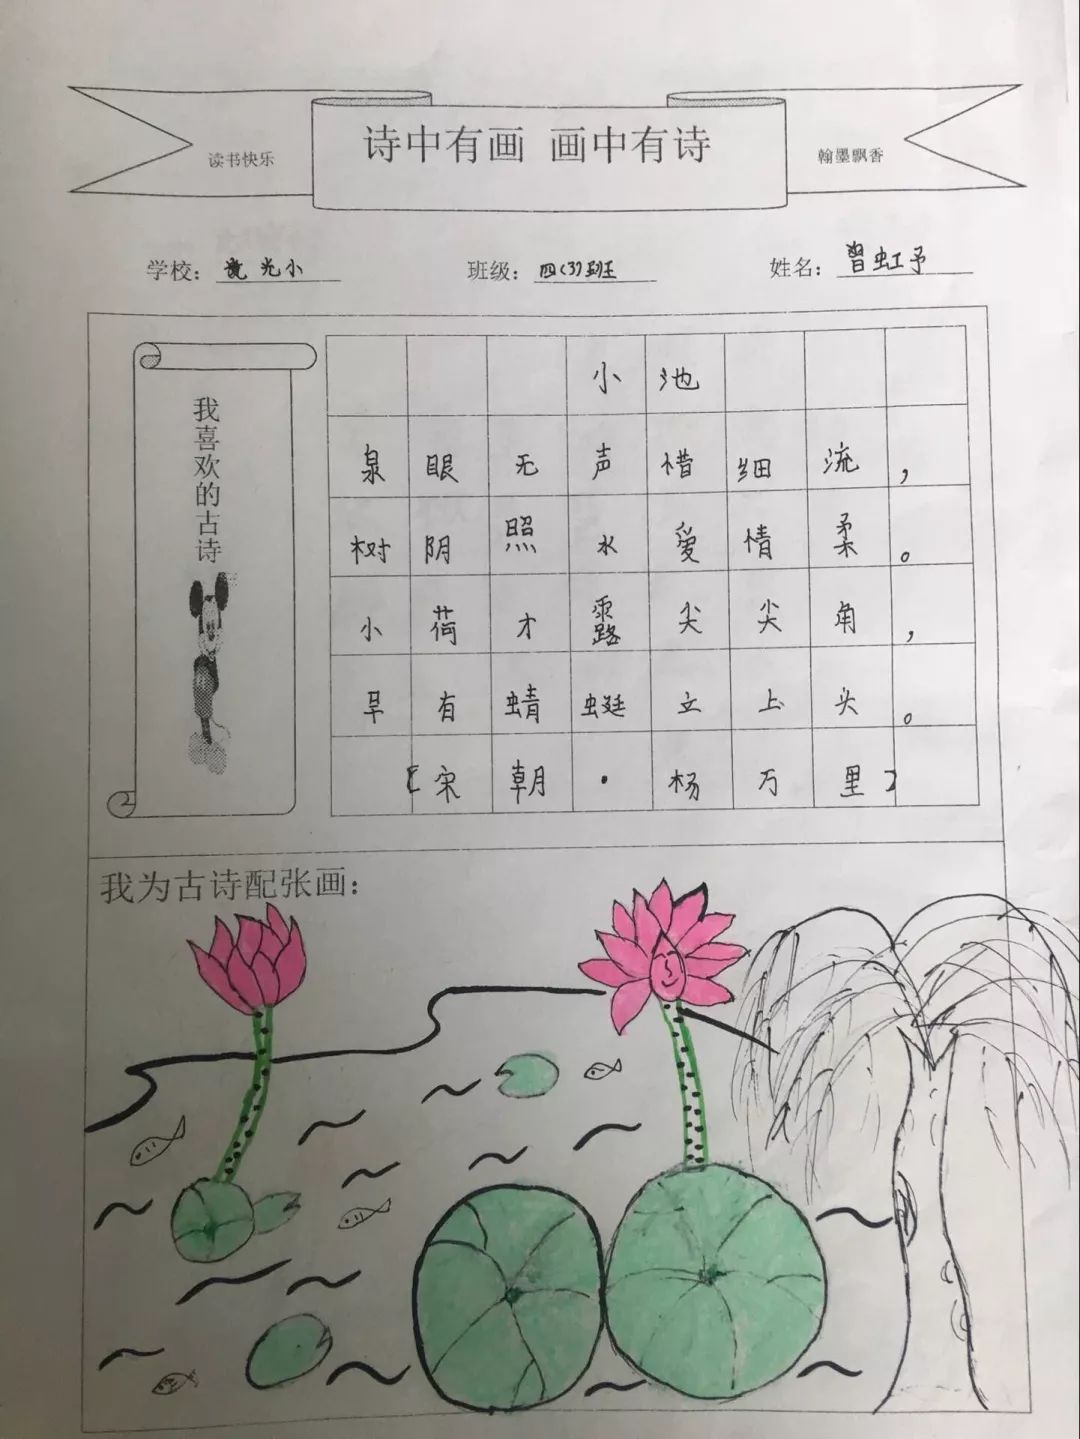 诗中有画 画中有诗
读书快乐
翰墨飘香
学校: 光小 班级: 四(3)班 姓名: 曾虹予
我喜欢的古诗
小池
泉眼无声惜细流,
树阴照水爱情柔。
小荷才露尖尖角,
早有蜻蜓立上头。
[宋朝·杨万里]
我为古诗配张画: